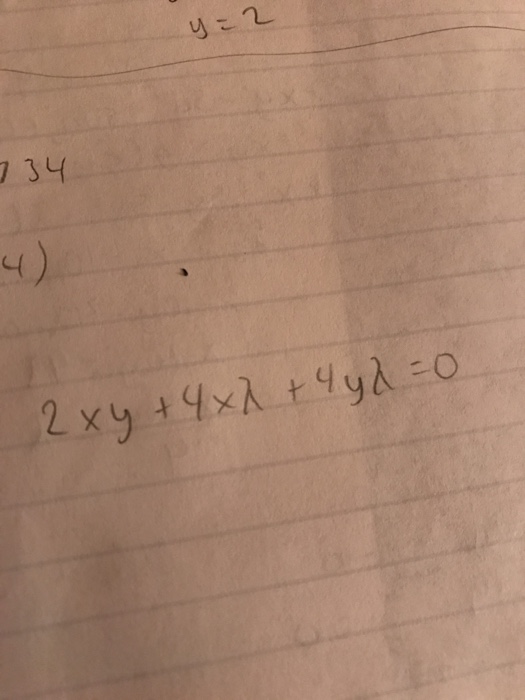 y=2
34
4)
2xy+4xλ+4yλ=0